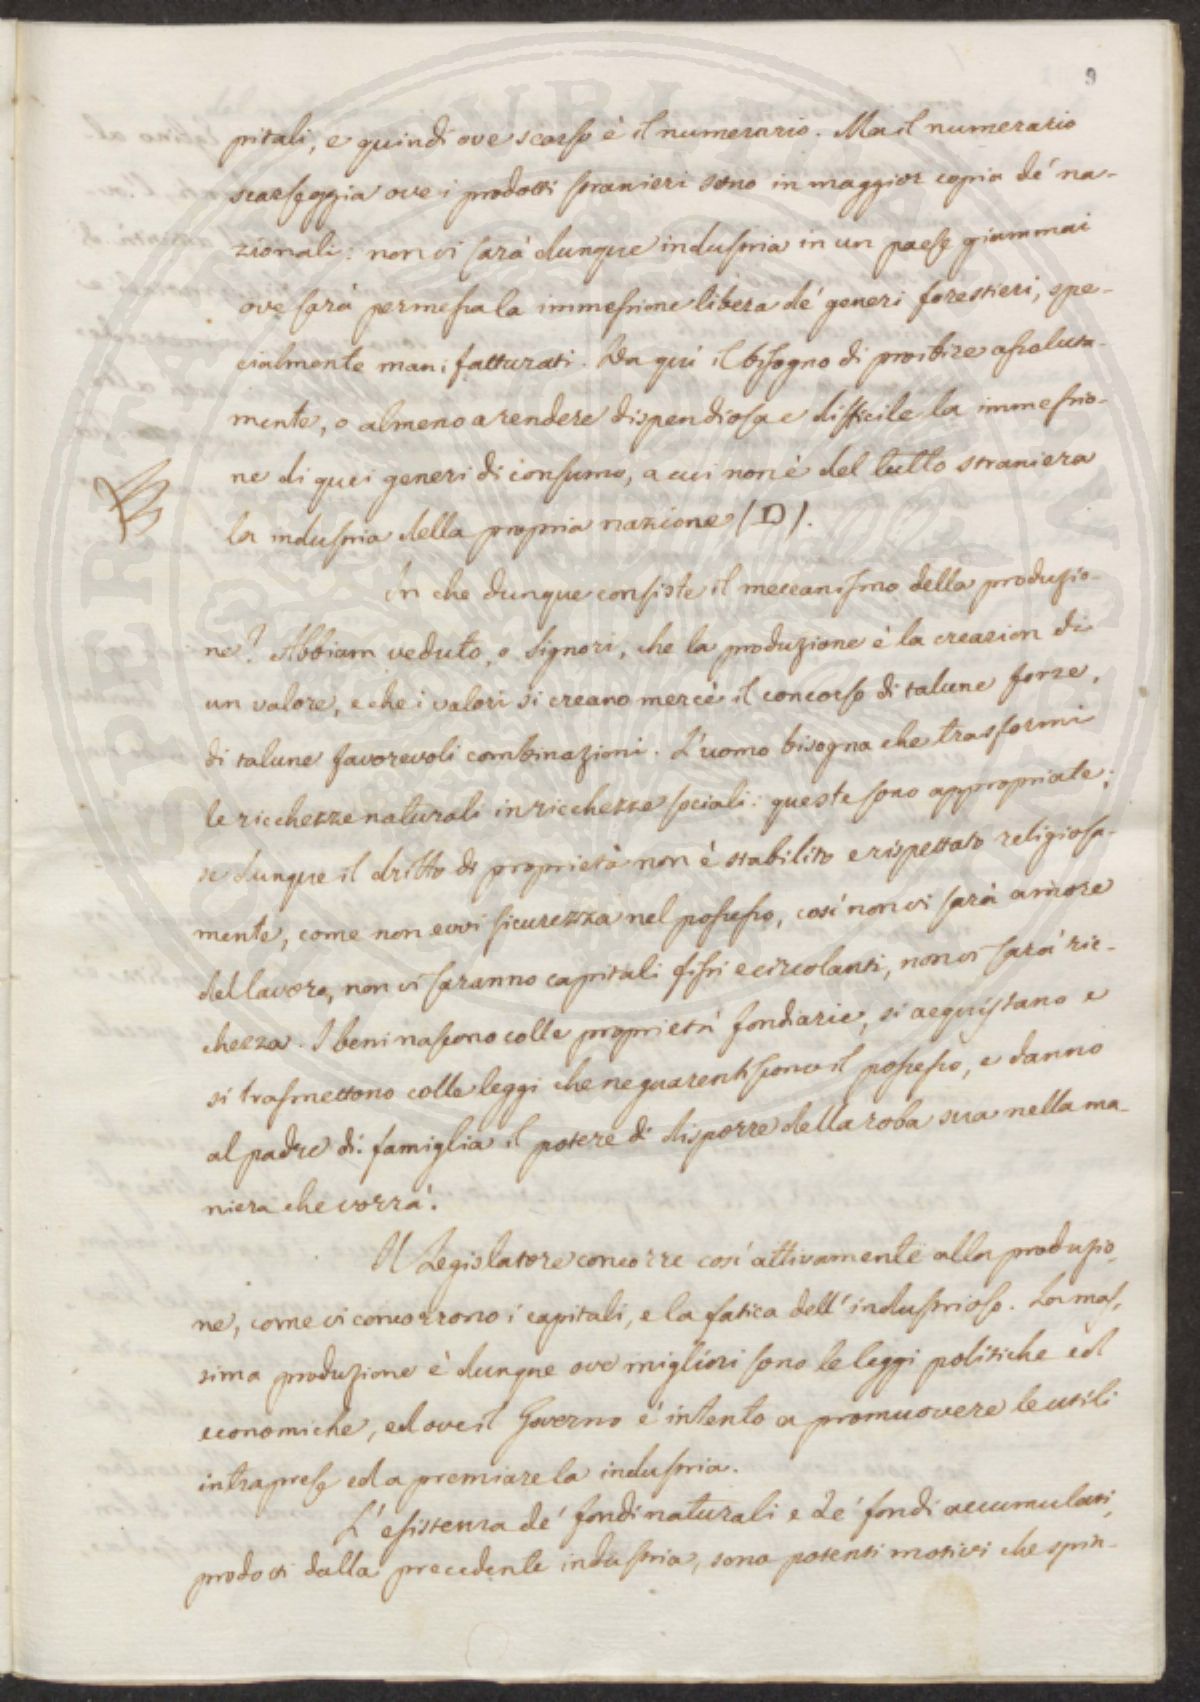 9
pitali, e quindi ove scarso è il numerario. Ma il numerario
scarseggia ove i prodotti stranieri sono in maggior copia de' na-
zionali: non vi sarà dunque industria in un paese giammai
ove sarà permessa la immessione libera de' generi forestieri, spe-
cialmente manifatturati. Da qui il bisogno di proibire assoluta-
mente, o almeno a rendere dispendiosa e difficile la immessio-
ne di quei generi di consumo, a cui non è del tutto straniera
la industria della propria nazione (D).
In che dunque consiste il meccanismo della produzio-
ne? Abbiam veduto, o Signori, che la produzione è la creazion di
un valore, e che i valori si creano mercè il concorso di talune forze,
di talune favorevoli combinazioni. L'uomo bisogna che trasformi
le ricchezze naturali in ricchezze sociali: queste sono appropriate;
se dunque il dritto di proprietà non è stabilito e rispettato religiosa-
mente, come non evvi sicurezza nel possesso, così non vi sarà amore
del lavoro, non vi saranno capitali fissi e circolanti, non vi sarà ric-
chezza. I beni nascono colle proprietà fondiarie, si acquistano e
si trasmettono colle leggi che ne guarentiscono il possesso, e danno
al padre di famiglia il potere di disporre della roba sua nella ma-
niera che vorrà.
Il Legislatore concorre così attivamente alla produzio-
ne, come vi concorrono i capitali, e la fatica dell'industrioso. La mas-
sima produzione è dunque ove migliori sono le leggi politiche ed
economiche, ed ove il Governo è intento a promuovere le utili
intraprese ed a premiare la industria.
L'esistenza de' fondi naturali e de' fondi accumulati,
prodotti dalla precedente industria, sono potenti motivi che spin-